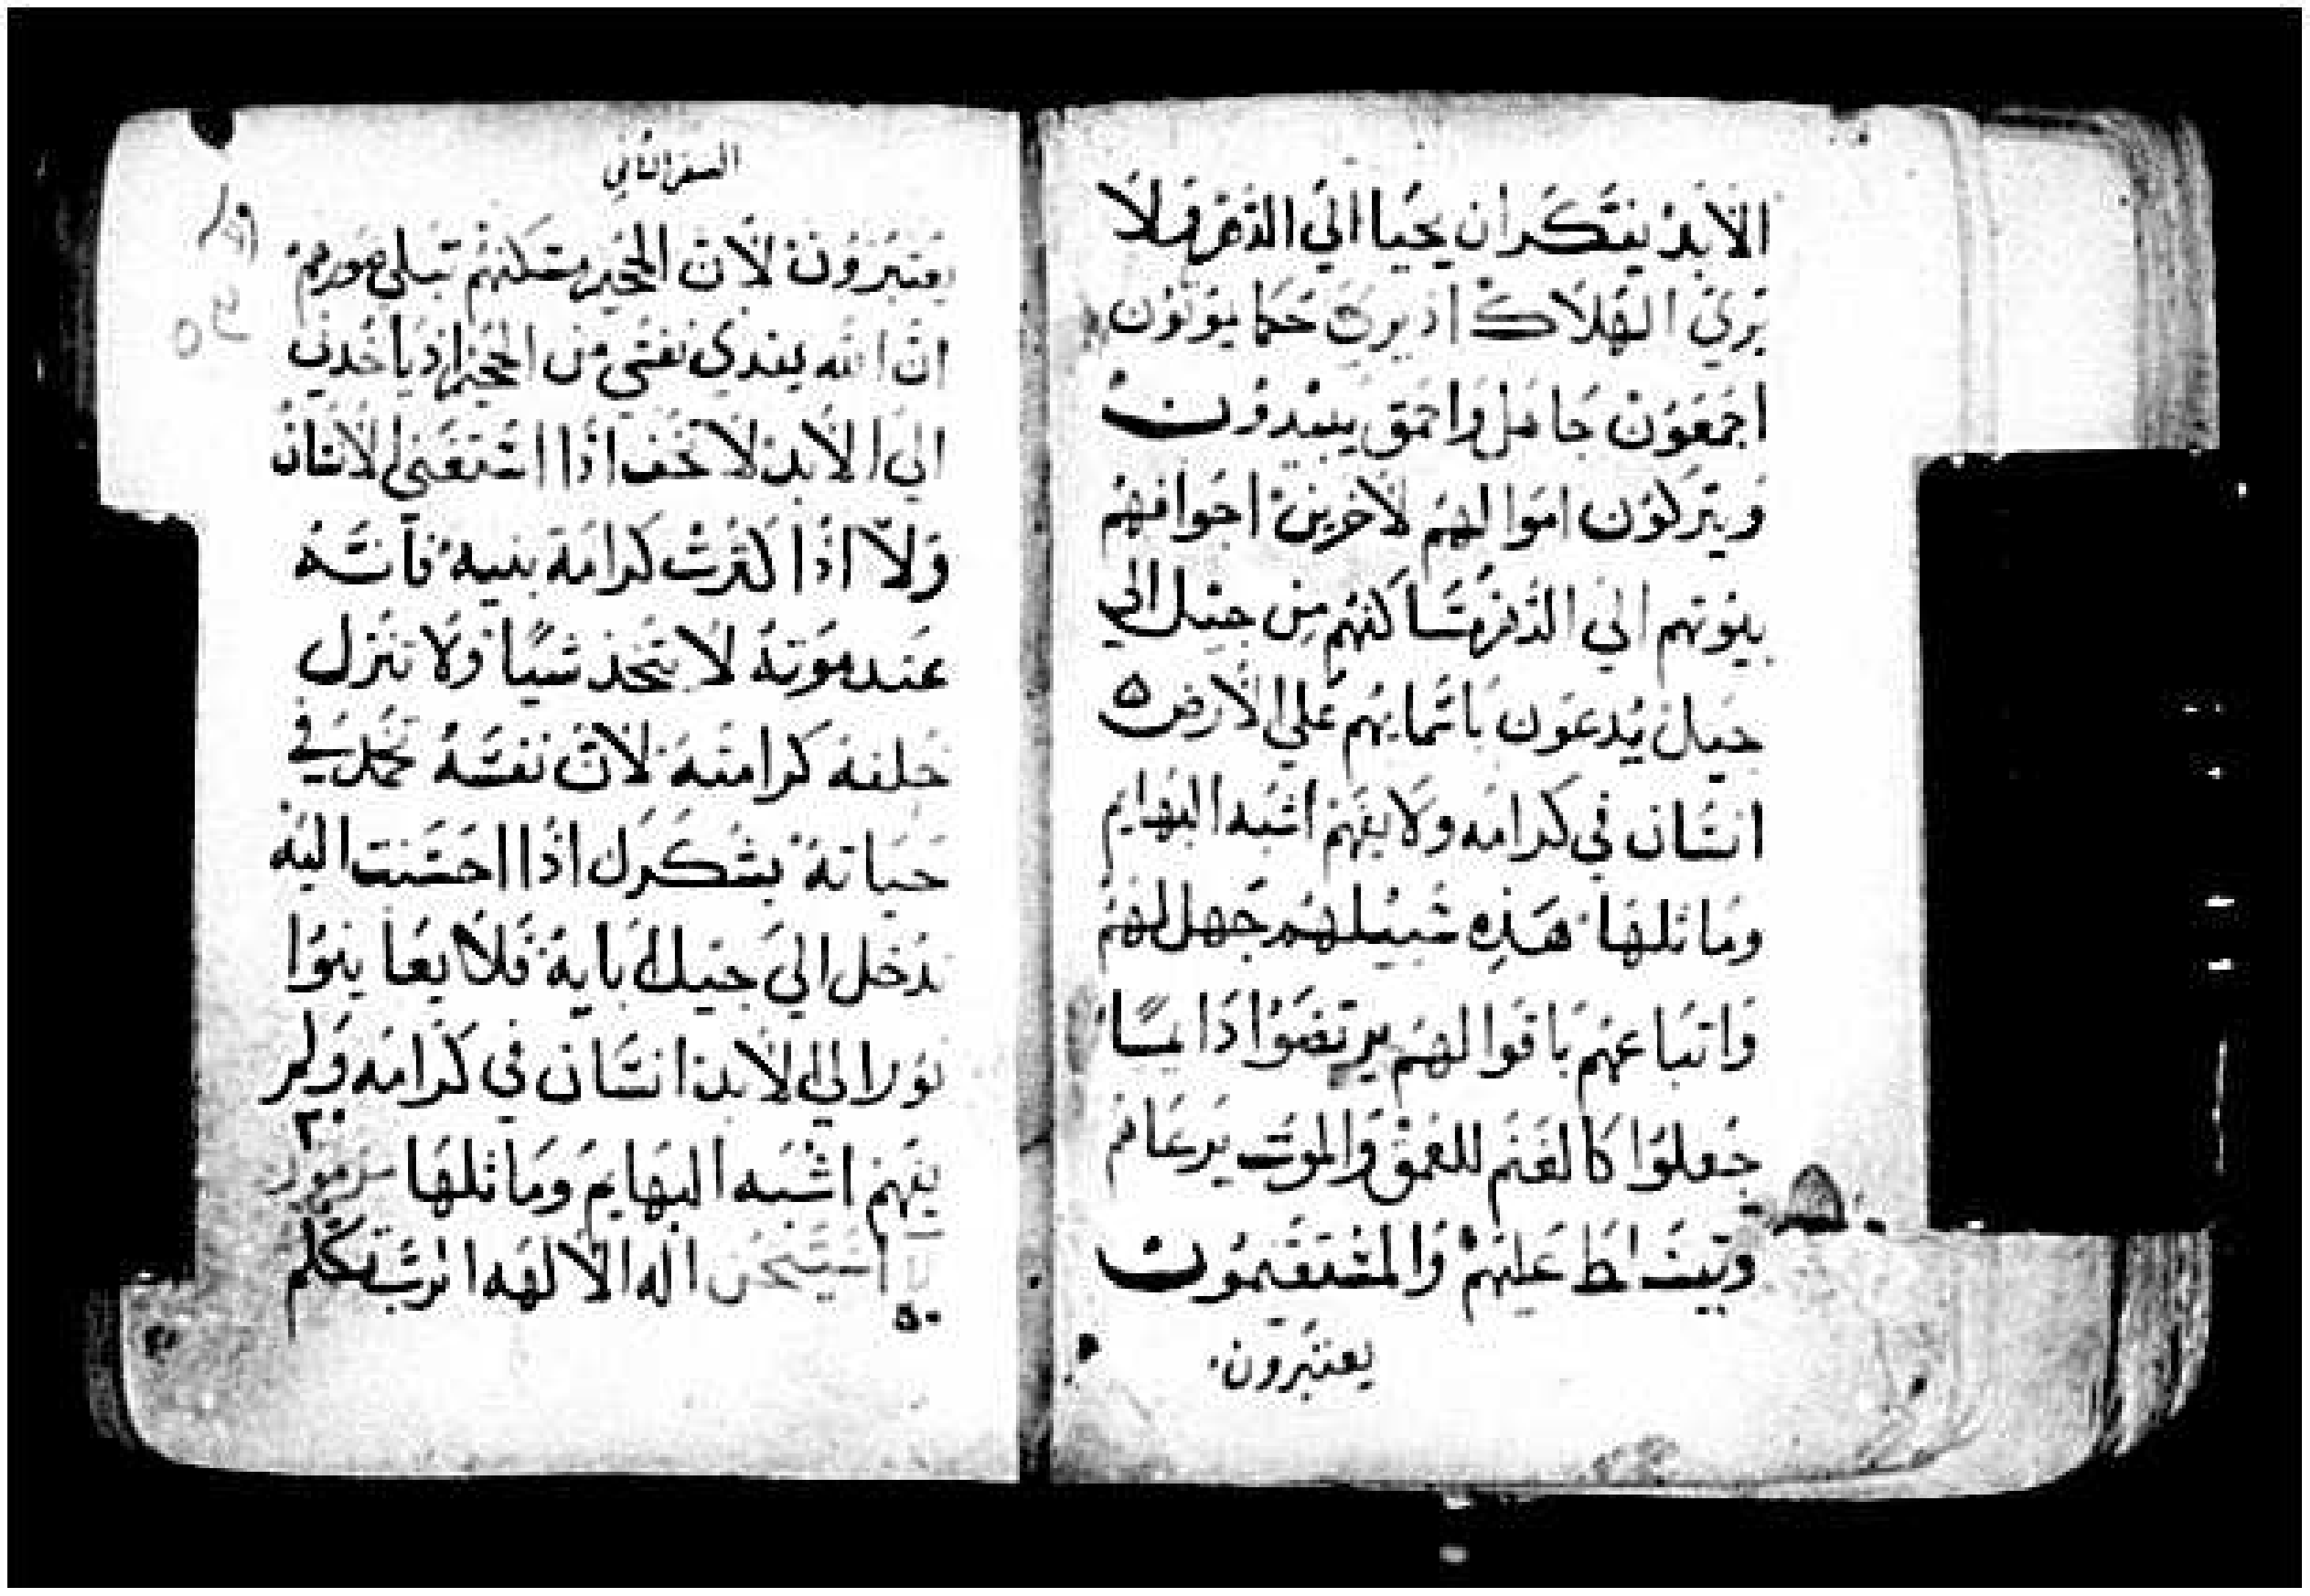 الابد يتكران يحيا الي الدهر فلا
يري الهلاك اذ يري حكما يوتون
اجمعون جاهل واحمق يبيدون
ويتركون اموالهم لاخرين اجوافهم
بيوتهم الي الدهر مساكنهم من جيل الي
جيل يدعون باسمايهم علي الارض
انسان في كرامه ولا يفهم اشبه البهايم
وماثلها هذه سبيلهم جهل لهم
واتباعهم باقوالهم يرتضوا دايما
جعلوا كالغنم للعمق والموت يرعاهم
عليهم والمستقيمون
يعتبرون
السفر الثاني
يعتبرون لان الجحيم مسكنهم تبلي
ان الله يفدي نفسي من الجحيم اذ ياخدني
الي الابد لا تخف اذا استغني الانسان
ولا اذا كثرت كرامة بنيه فانه
عند موته لا يتخذ شيا ولا تنزل
خلفه كرامته لان نفسه في
حياته يشكرك اذا احسنت اليه
تدخل الي جيل ابايه فلا يعاينوا
نورا الي الابد انسان في كرامه ولم
يفهم اشبه البهايم وماثلها مزمور
اله الالهه الرب تكلم